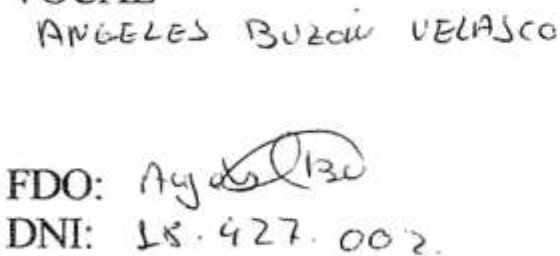 VOCAL
ANGELES BUZON VELASCO
FDO:
DNI: 18.427.002.